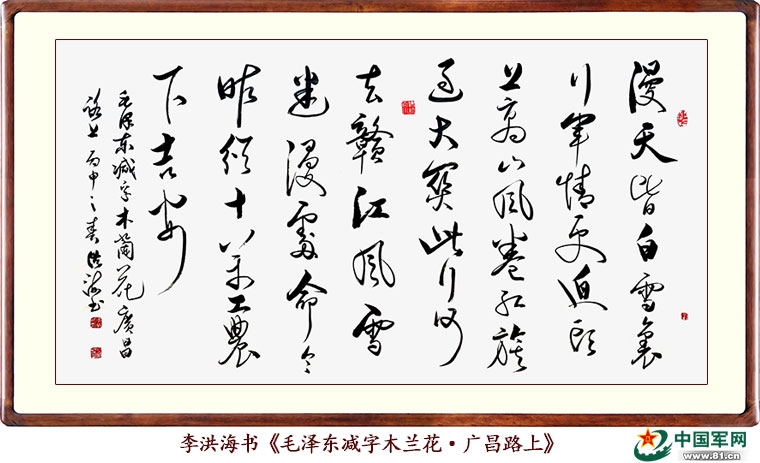 漫天皆白雪裏
行軍情更迫頭
上高山風卷紅旗
過大關此行何
去贛江風雪
迷漫處命令
昨頒十萬工農
下吉安
毛澤東減字木蘭花廣昌
路上丙申之春洪海书
李洪海书《毛泽东减字木兰花·广昌路上》
中国军网
www.81.cn